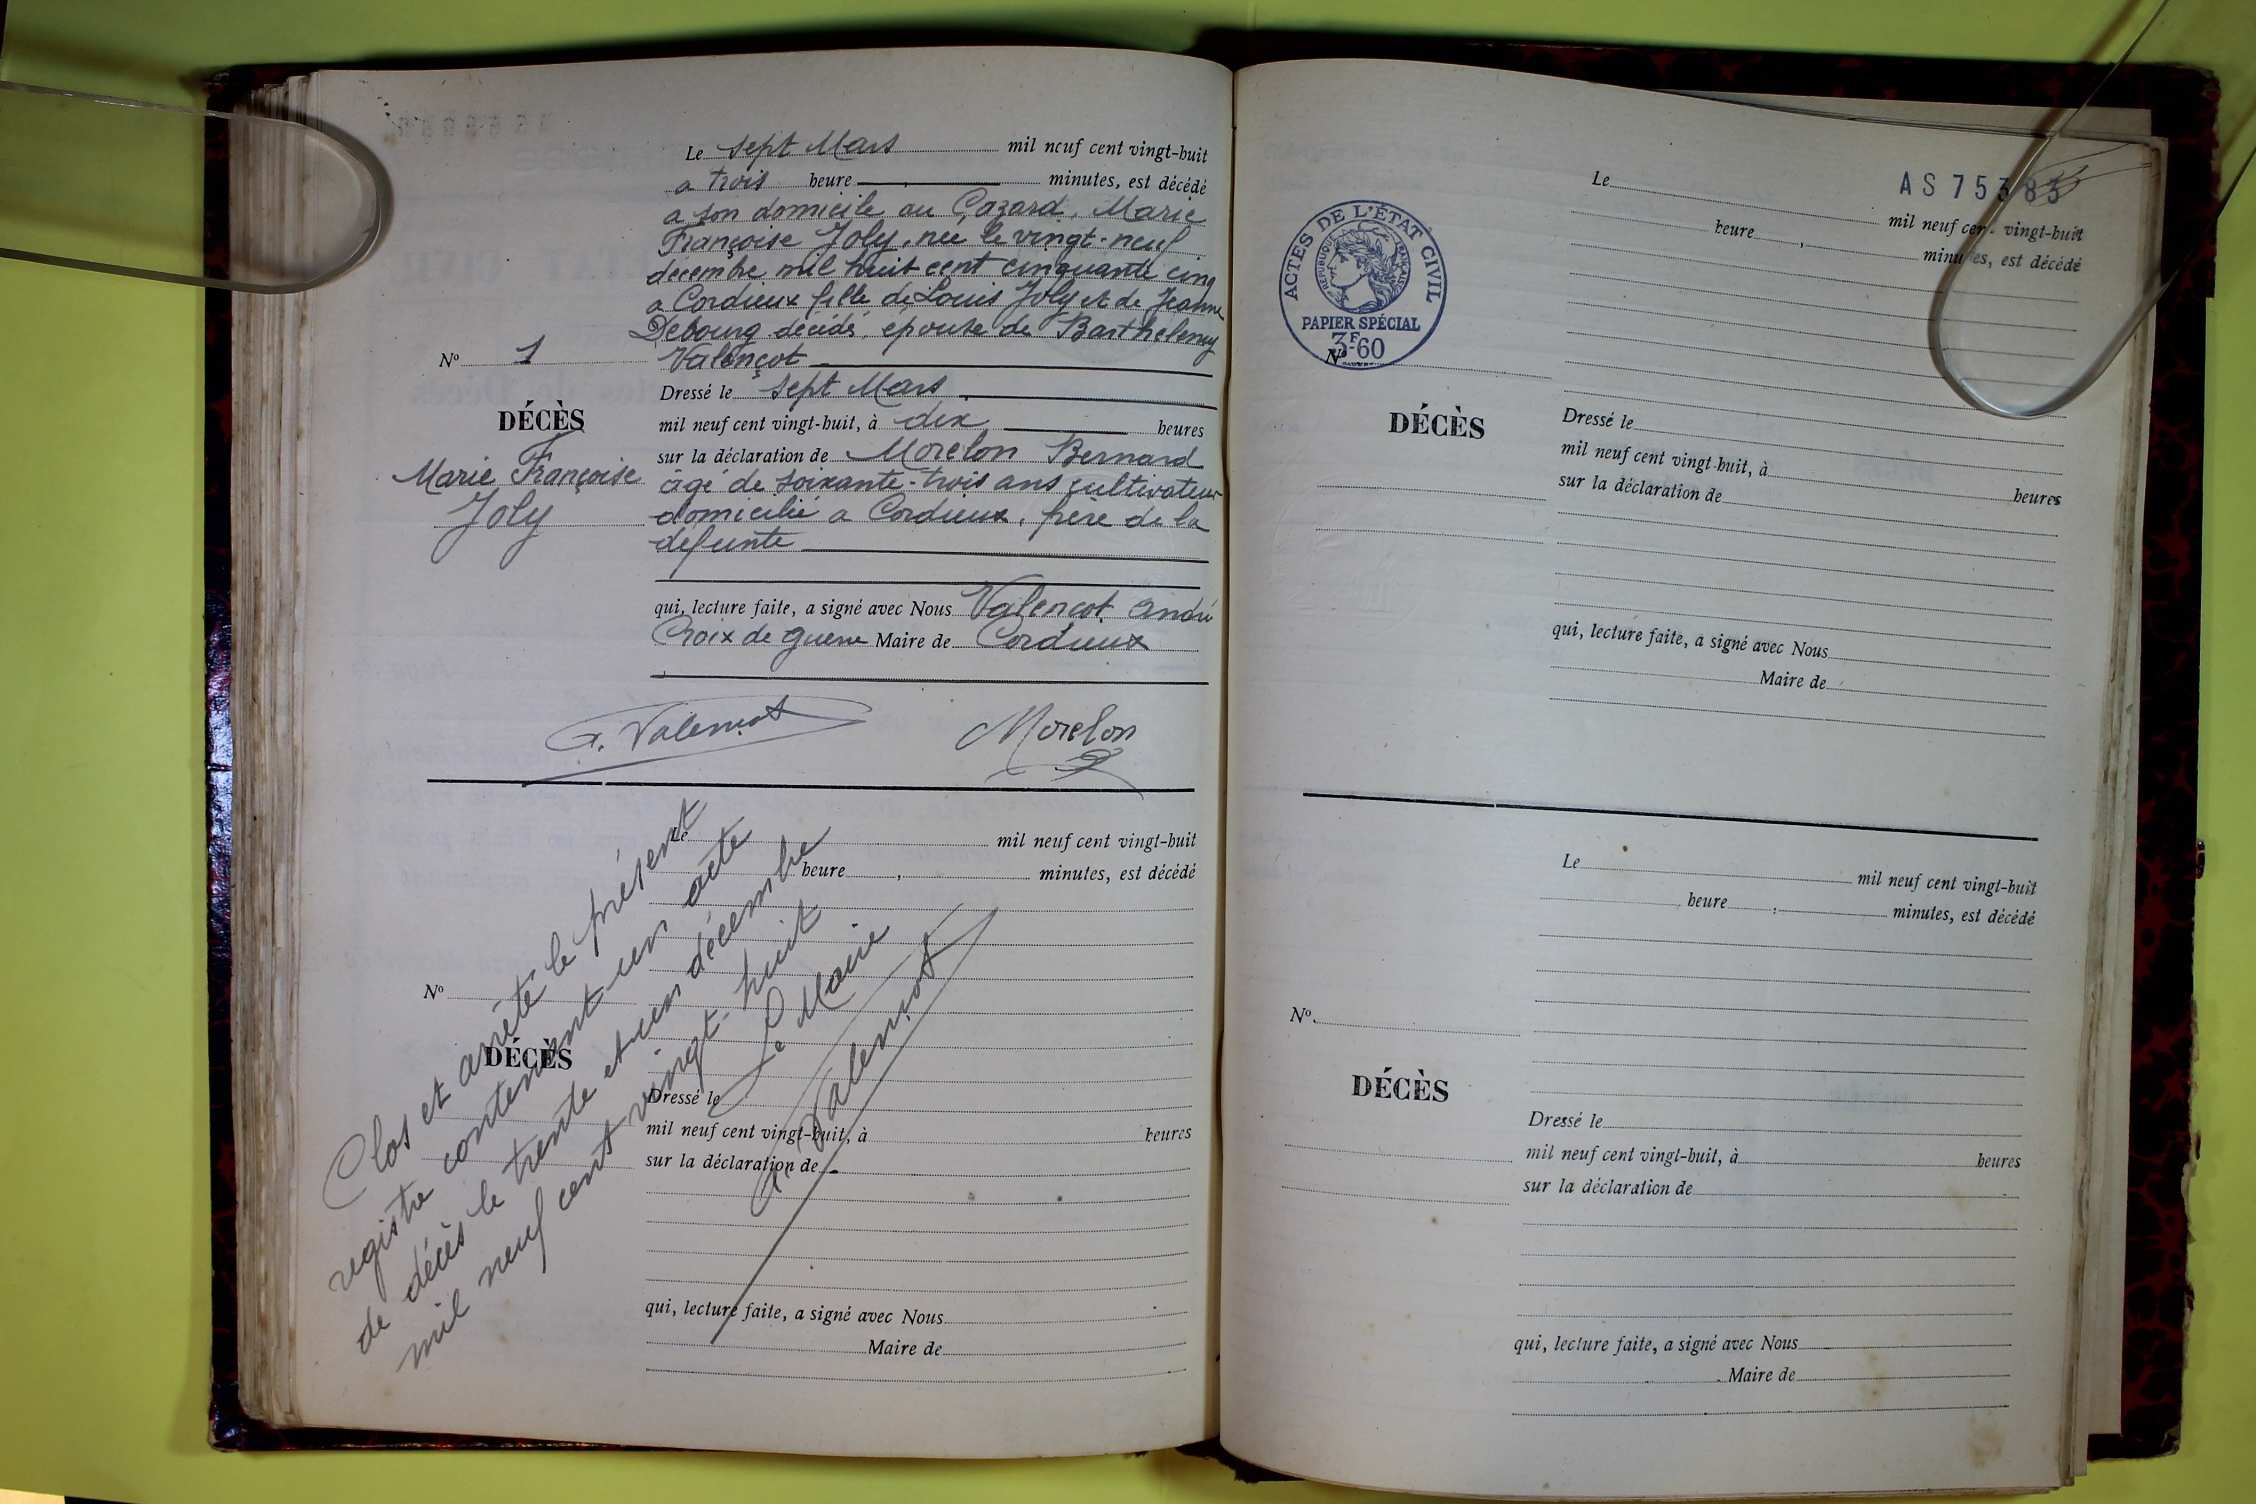 Le sept Mars mil neuf cent vingt-huit
a trois heure , minutes, est décédé
a son domicile au Cazard, Marie
Françoise Joly, née le vingt-neuf
décembre mil huit cent cinquante cinq
a Cordieux fille de Louis Joly et de Jeanne
Debourg décédés, epouse de Barthelemy
Valençot
Nº 1
DÉCÈS
Marie Françoise
Joly
Dressé le sept Mars
mil neuf cent vingt-huit, à dix heures
sur la déclaration de Morelon Bernard
âgé de soixante-trois ans cultivateur
domicilié a Cordieux, frère de la
defunte
qui, lecture faite, a signé avec Nous Valençot André
Croix de guerre Maire de Cordieux
A. Valençot
Morelon
Le mil neuf cent vingt-huit
heure , minutes, est décédé
Nº
DÉCÈS
Dressé le
mil neuf cent vingt-huit, à heures
sur la déclaration de
qui, lecture faite, a signé avec Nous
Maire de
Clos et arrêté le présent
registre contenant un acte
de décès le trente et un décembre
mil neuf cent vingt-huit
Le Maire
A. Valençot
AS 75383
ACTES DE L'ÉTAT CIVIL
RÉPUBLIQUE FRANÇAISE
PAPIER SPÉCIAL
3F60
Le mil neuf cent vingt-huit
heure , minutes, est décédé
Nº
DÉCÈS
Dressé le
mil neuf cent vingt-huit, à heures
sur la déclaration de
qui, lecture faite, a signé avec Nous
Maire de
Le mil neuf cent vingt-huit
heure , minutes, est décédé
Nº
DÉCÈS
Dressé le
mil neuf cent vingt-huit, à heures
sur la déclaration de
qui, lecture faite, a signé avec Nous
Maire de